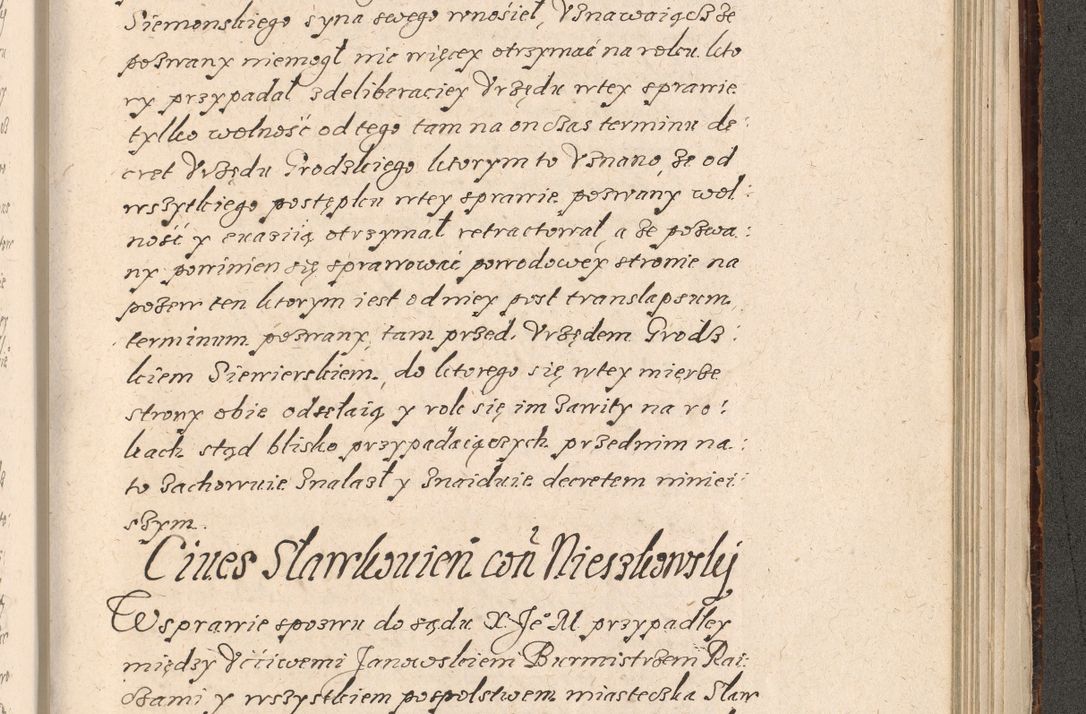 Siemonskiego syna swego wnosieł, Uznawaiącz że
pozwany niemogł nic więcey otrzymać na roku kto
ry przypadał z deliberaciey Urzędu wtey sprawie
tylko wolność od tego tam na on czas terminu de:
cret Urzędu Grodzkiego ktorym to Uznano, że od
wszytkiego postępku wtey sprawie pozwany wol:
ność y evasiią otrzymał retractował, a że pozwa:
ny powinien się sprawować powodowey stronie na
pozew ten ktorym iest od niey post translapsum
terminum pozwany, tam przed Urzędem Grodz:
kiem Siewierskiem, do ktorego się wtey mierze
strony obie odsełaią y rok się im zawity na ro:
kach stąd blisko przypadaiączych przed nim na:
to zachowuie znalazł y znaiduie decretem niniei:
szym.
Ciues Slawkouień coñ Nieszkowskij
W sprawie spozwu do sądu X. Je° M przypadłey
między Ućciwemi Janowskiem Burmistrzem Rai:
czami y wszystkiem pospolstwem miasteczka Slaw